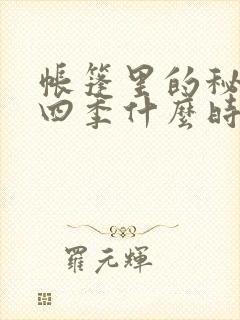 帳篷里的秘
四季什麼時
羅元輝